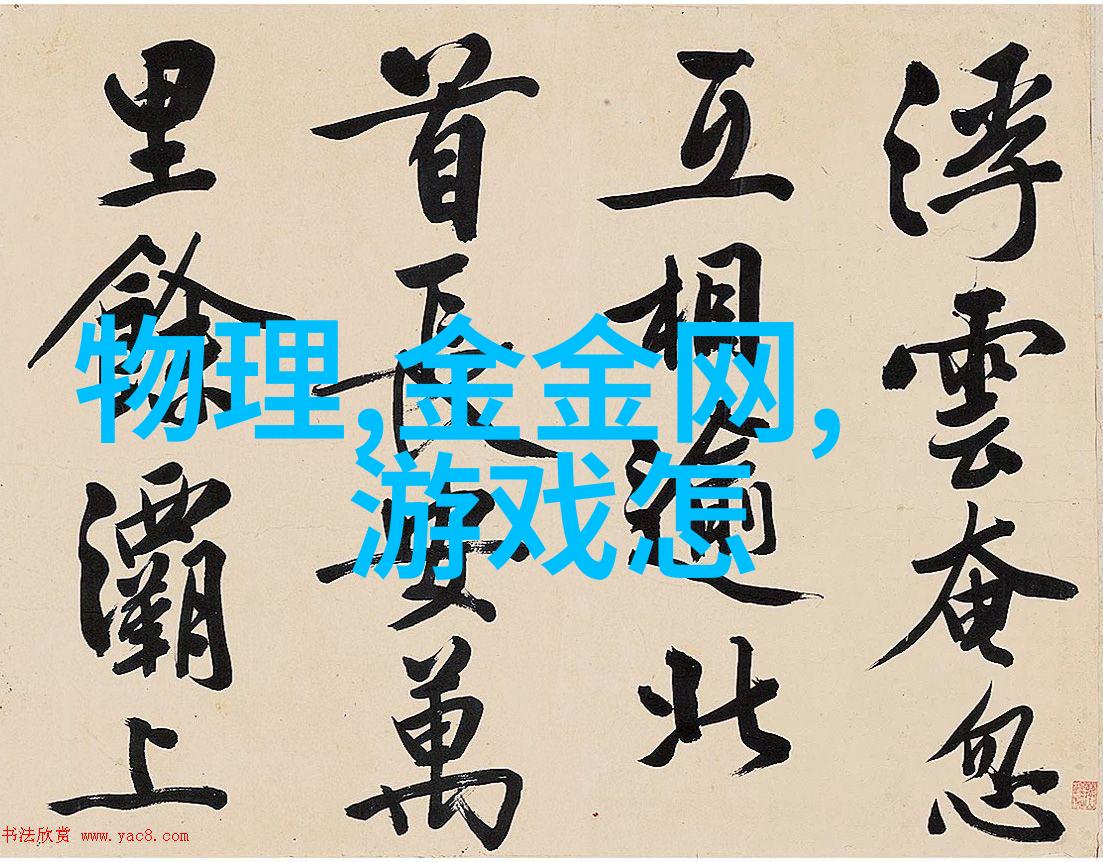 浮雲奄忽
互相逾北
首長安萬
里餘灞上
物理,金金网,
游戏怎
书法欣赏 www.yac8.com